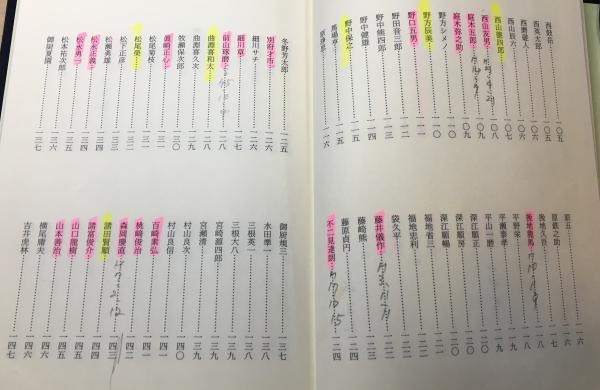 西鼓岳 一〇五
西英太郎 一〇五
西磨礎人 一〇五
西山辰六 一〇六
西山徳四郎 一〇七
西山友男 一〇八
庭木五郎 一〇九
庭木弥之助 一一〇
野方シメノ 一一〇
野方辰美 一一一
野口五男 一一二
野田音三郎 一一三
野中熊四郎 一一四
野中健雄 一一四
野中保之 一一五
馬場章 一一五
原静思 一一六
原五 一一六
原鉄之助 一一六
挽地久吾 一一七
挽地龍馬 一一八
平野栄 一一八
平瀬泰孝 一一九
平山一磨 一一九
深江順正 一二〇
深江順房 一二〇
深江順暢 一二〇
福地省三 一二一
福地忠利 一二一
袋久平 一二一
藤井儀作 一二二
藤崎熊 一二三
藤原貞円 一二四
不二見達朗 一二四
冬野芳太郎 一二五
別府才市 一二六
細川サチ 一二六
細川章 一二七
前山琢磨 一二八
曲淵喜和太 一二八
曲淵喜久次 一二九
牧瀬保次郎 一三〇
眞崎正心 一三〇
松尾菊枝 一三一
松尾榮一 一三二
松下正彦 一三三
松瀬勇雄 一三三
松永正義 一三四
松永勇一 一三五
松本祐次郎 一三六
御厨夏園 一三七
御厨規三 一三七
水田準一 一三八
三根英一 一三八
三根大八 一三九
宮崎源四郎 一三九
宮瀬清 一三九
村山良次 一四〇
村山良信 一四〇
百崎素弘 一四一
桃崎俊治 一四一
森岡慶直 一四二
諸田賢順 一四三
諸富俊介 一四四
山口龍樹 一四四
山本善治 一四五
横尾庸夫 一四六
吉井虎林 一四七